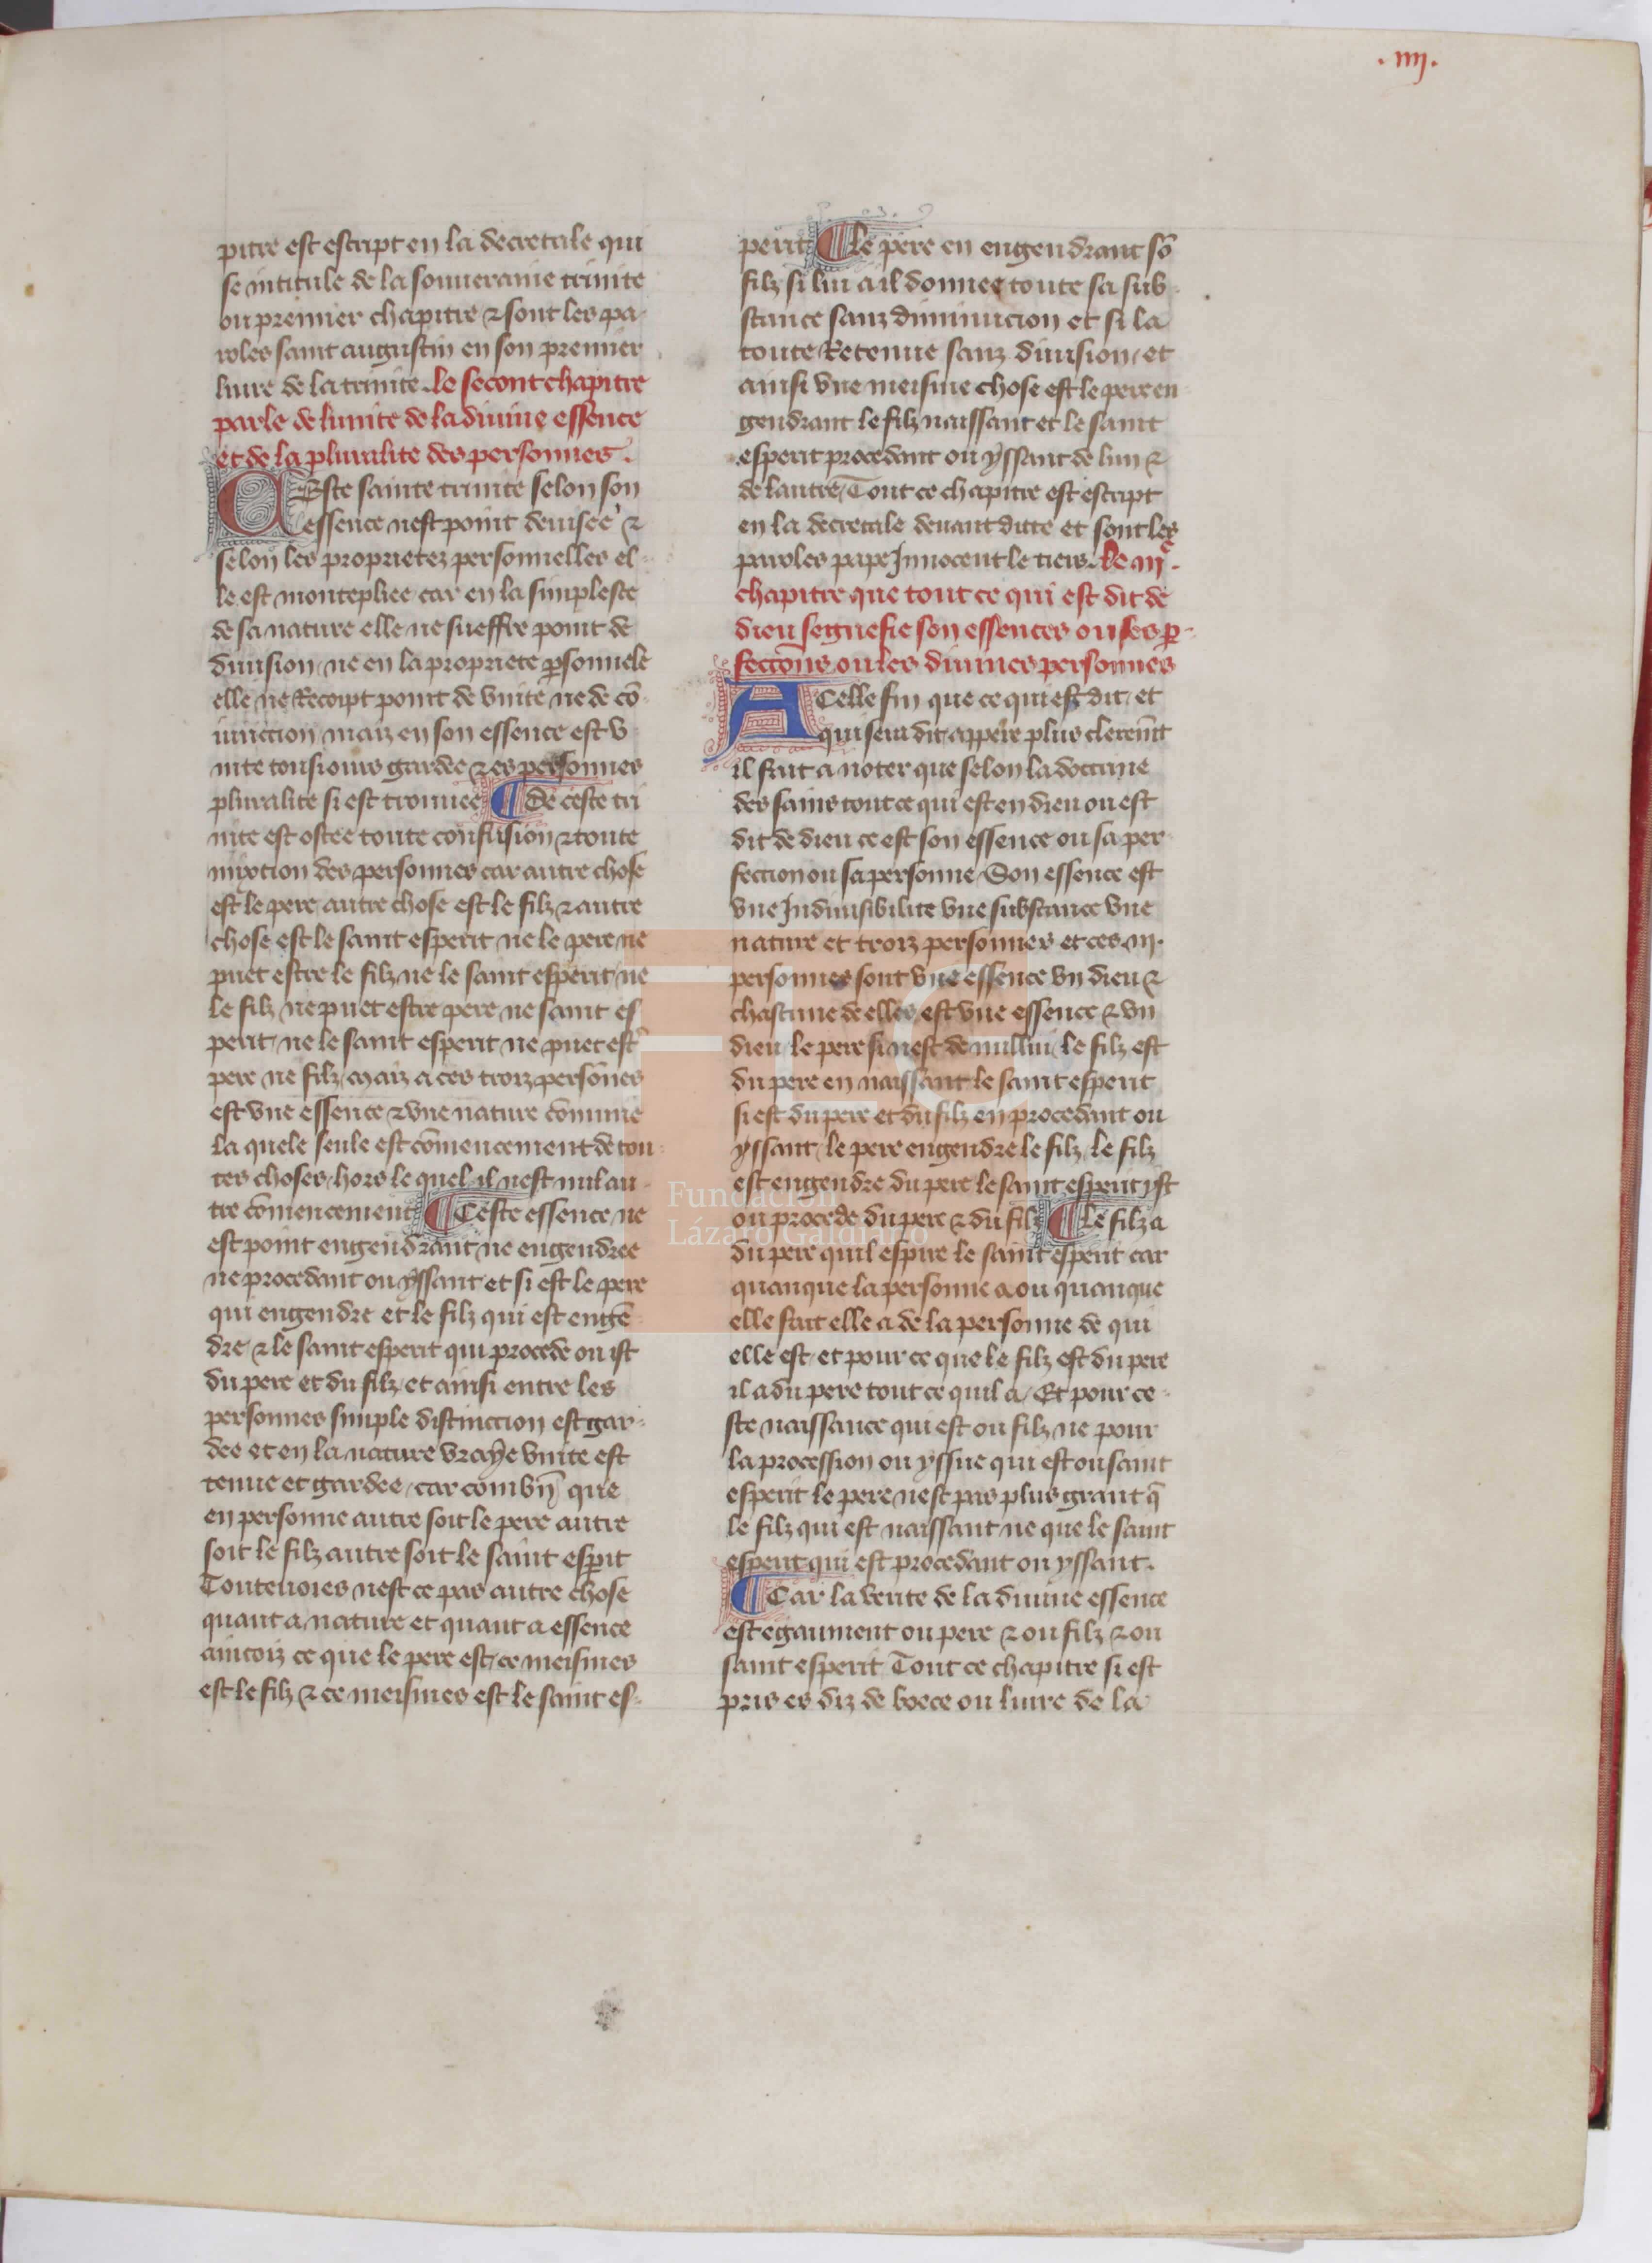 .iiij.
pitre est escript en la decretale qui
se intitule de la souueraine trinite
ou premier chapitre ⁊ sont les pa-
roles saint augustin en son premier
liure de la trinite. le secont chapitre
parle de lunite de la diuine essence
et de la pluralite des personnes.
CEste sainte trinite selon son
essence nest point deuisee ⁊
selon les proprietez personnelles el-
le est montepliee car en la simplesce
de sa nature elle ne sueffre point de
diuision ne en la propriete ꝑsonnele
elle ne recoipt point de vnite ne de cō-
iunction maiz en son essence est v-
nite tousiours gardee ⁊ es personnes
pluralite si est trouuee ¶ de ceste tri
nite est ostee toute confusion ⁊ toute
mixtion des personnes car autre chose
est le pere autre chose est le filz ⁊ autre
chose est le saint esperit ne le pere ne
puet estre le filz ne le saint esperit ne
le filz ne puet estre pere ne saint es
perit ne le saint esperit ne puet estʳ
pere ne filz maiz a ces troiz persōnes
est vne essence ⁊ vne nature cōmune
la quele seule est cōmencement de tou-
tes choses hors le quel il nest nul au-
tre cōmencement ¶ Ceste essence ne
est point engendrant ne engendree
ne procedant ou yssant et si est le pere
qui engendre et le filz qui est engē-
dre ⁊ le saint esperit qui procede ou ist
du pere et du filz et ainsi entre les
personnes simple distinction est gar-
dee et en la nature vraye vnite est
tenue et gardee car combn̄ que
en personne autre soit le pere autre
soit le filz autre soit le saint esꝑit
Touteuoies nest ce pas autre chose
quant a nature et quant a essence
aincoiz ce que le pere est ce meismes
est le filz ⁊ ce meismes est le saint es-
perit ¶ le pere en engendrant sō
filz si lui a il donnee toute sa sub-
stance sanz diminucion et si la
toute retenue sanz diuision et
ainsi vne meisme chose est le pere en-
gendrant le filz naissant et le saint
esperit procedant ou yssant de lun ⁊
de lautre Tout ce chapitre est escript
en la decretale deuant ditte et sont les
paroles pape Innocent le tiers. le iijᵉ.
chapitre que tout ce qui est dit de
dieu seguefie son essences ou ses ꝑ-
fections ou les diuines personnes
A Celle fin que ce qui est dit et
qui sera dit appere plus cleremēt
il fait a noter que selon la doctrine
des sains tout ce qui est en dieu ou est
dit de dieu ce est son essence ou sa per-
fection ou sa personne Son essence est
vne Indiuisibilite vne substance vne
nature et troiz personnes et ces .iij.
personnes sont vne essence vn dieu ⁊
chascune de elles est vne essence ⁊ vn
dieu le pere si nest de nullui le filz est
du pere en naissant le saint esperit
si est du pere et du filz en procedant ou
yssant le pere engendre le filz le filz
est engendre du pere le saint esperit yst
ou procede du pere ⁊ du filz ¶ Le filz a
du pere quil espire le saint esperit car
quanque la personne a ou quanque
elle fait elle a de la personne de qui
elle est et pour ce que le filz est du pere
il a du pere tout ce quil a Et pour ce-
ste naissance qui est ou filz ne pour
la procession ou yssue qui est ou saint
esperit le pere nest pas plus grant q̄
le filz qui est naissant ne que le saint
esperit qui est procedant ou yssant.
¶ Car la verite de la diuine essence
est egaument ou pere ⁊ ou filz ⁊ ou
saint esperit Tout ce chapitre si est
pris es diz de boece ou liure de la
Fundación
Lázaro Galdiano